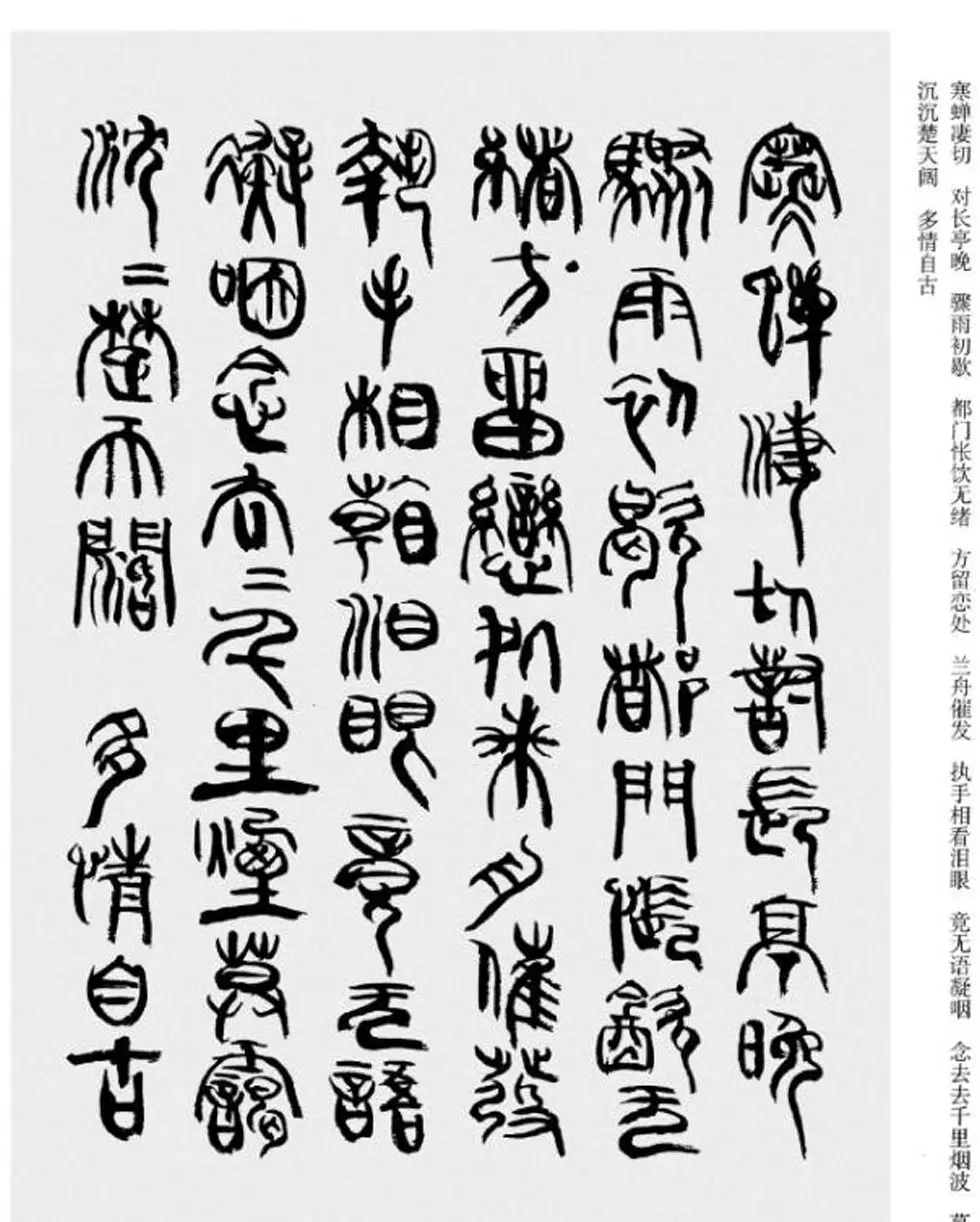 寒蝉凄切 对长亭晚 骤雨初歇 都门怅饮无绪 方留恋处 兰舟催发 执手相看泪眼 竟无语凝咽 念去去千里烟波
沉沉楚天阔 多情自古
寒蟬淒切對長亭晚
驟雨初歇都門悵飲无
緒方留戀処舟催發
執手相看泪眼竟无語
凝咽念去=千里煙莫靄
沈=楚天闊 多情自古